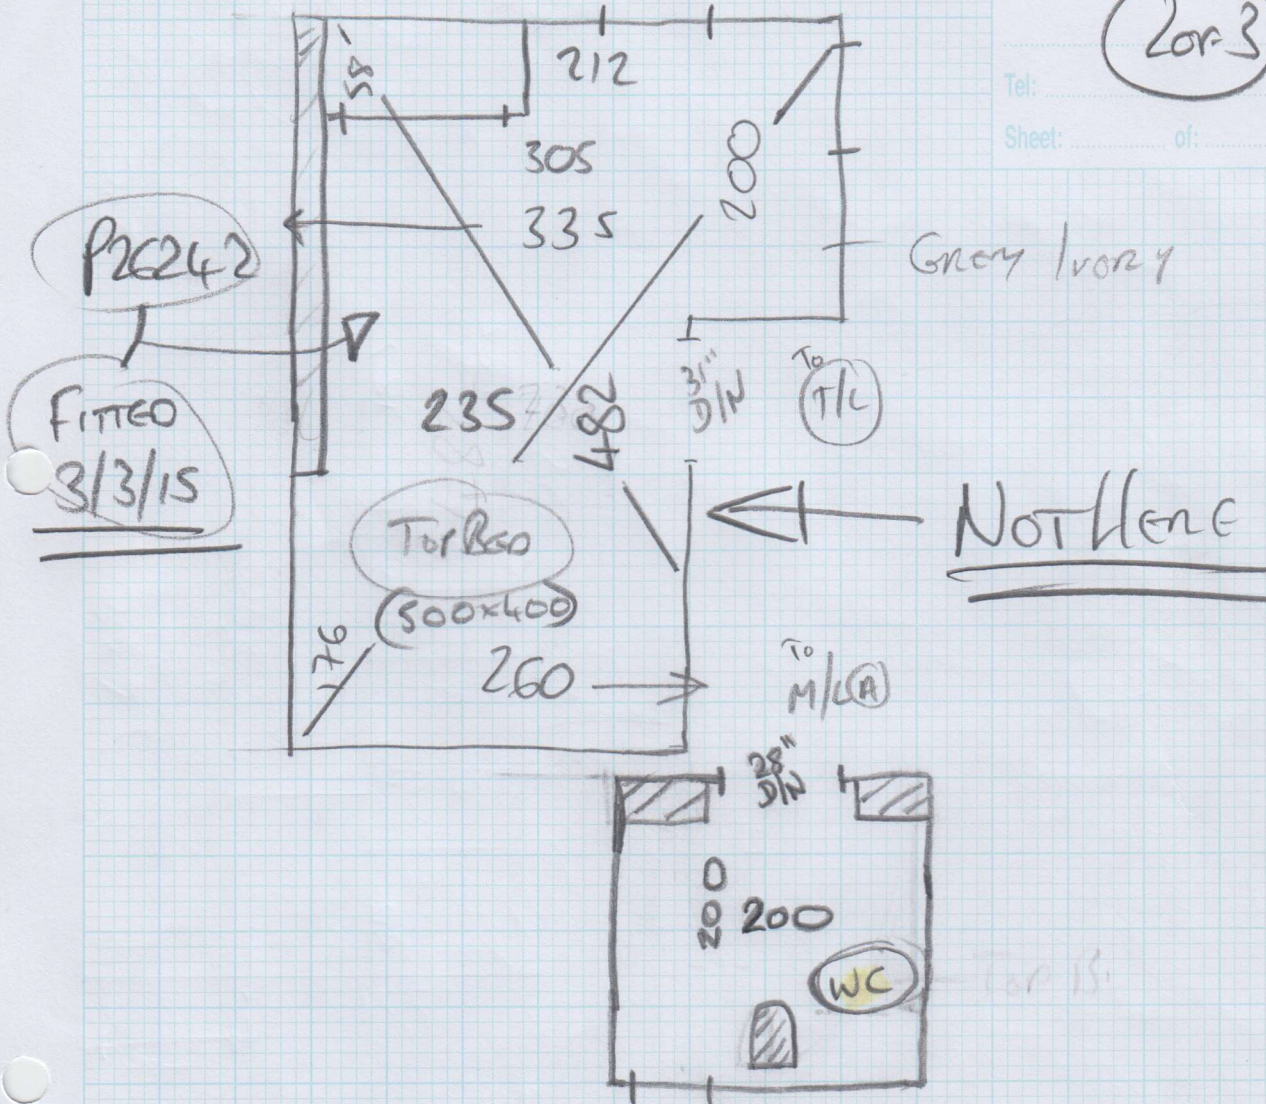 2 OF 3
Tel:
Sheet: of:
58
212
305
200
335
P26242
GREY / IVORY
FITTED
3/3/15
235
482
31"
D/N
TO
T/L
NOT HERE
TOP BED
(500x400)
176
260
TO
M/L(A)
28"
D/N
200
200
WC